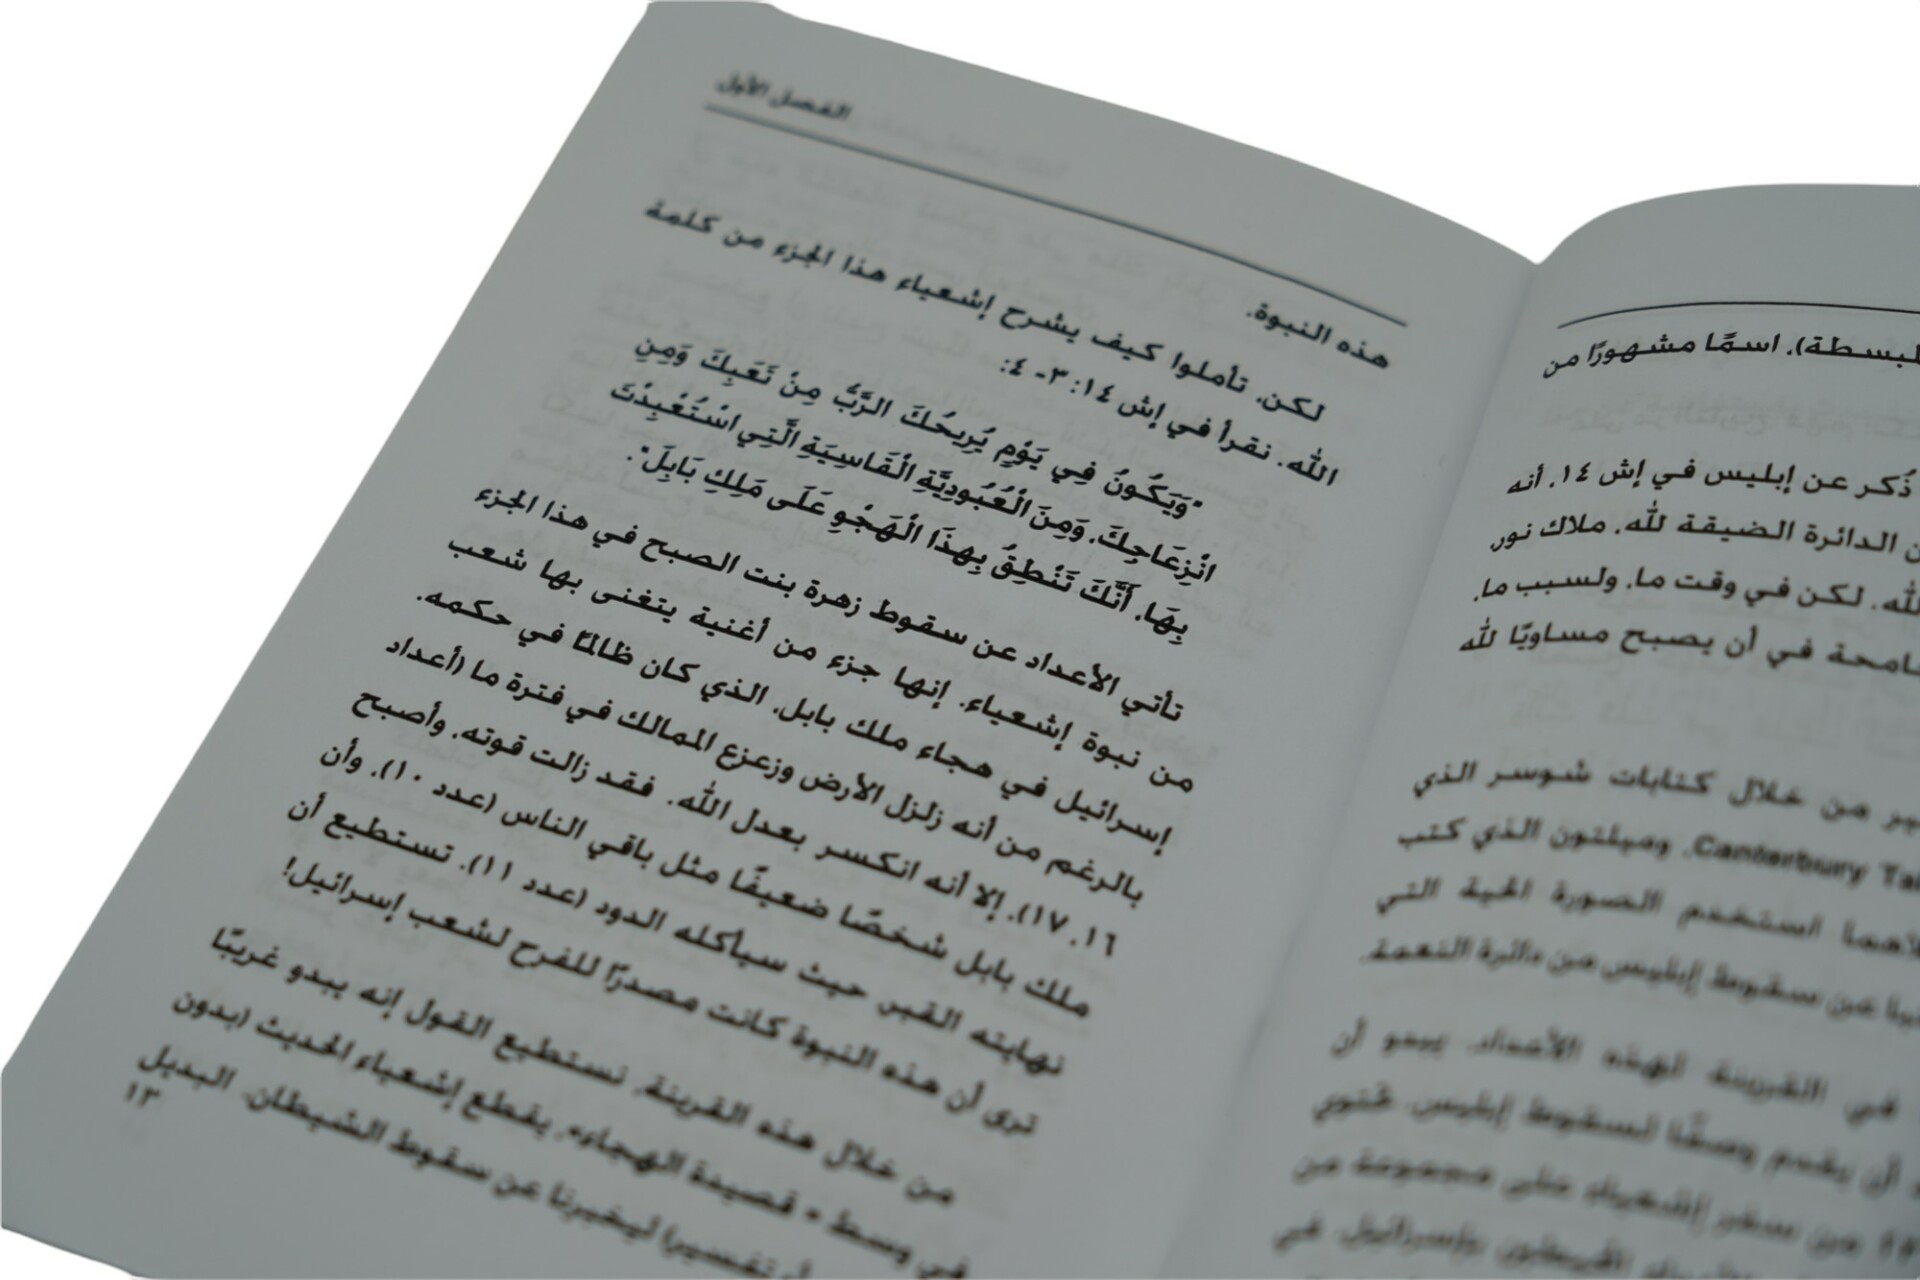 الفصل الأول
هذه النبوة.
لكن، تأملوا كيف يشرح إشعياء هذا الجزء من كلمة
الله. نقرأ في إش ١٤: ٣- ٤:
"وَيَكُونُ فِي يَوْمٍ يُرِيحُكَ الرَّبُّ مِنْ تَعَبِكَ وَمِنِ
انْزِعَاجِكَ، وَمِنَ الْعُبُودِيَّةِ الْقَاسِيَةِ الَّتِي اسْتُعْبِدْتَ
بِهَا، أَنَّكَ تَنْطِقُ بِهذَا الْهَجْوِ عَلَى مَلِكِ بَابِلَ".
تأتي الأعداد عن سقوط زهرة بنت الصبح في هذا الجزء
من نبوة إشعياء. إنها جزء من أغنية يتغنى بها شعب
إسرائيل في هجاء ملك بابل، الذي كان ظالمًا في حكمه.
بالرغم من أنه زلزل الأرض وزعزع الممالك في فترة ما (أعداد
١٦، ١٧)، إلا أنه انكسر بعدل الله. فقد زالت قوته، وأصبح
ملك بابل شخصًا ضعيفًا مثل باقي الناس (عدد ١٠)، وأن
نهايته القبر، حيث سيأكله الدود (عدد ١١). تستطيع أن
ترى أن هذه النبوة كانت مصدرًا للفرح لشعب إسرائيل!
من خلال هذه القرينة، نستطيع القول إنه يبدو غريبًا
في وسط " قصيدة الهجاء"، يقطع إشعياء الحديث (بدون
تفسير) ليخبرنا عن سقوط الشيطان. البديل
١٣
اسمًا مشهورًا من
ذُكر عن إبليس في إش ١٤، أنه
الدائرة الضيقة لله، ملاك نور
لله. لكن في وقت ما، ولسبب ما،
في أن يصبح مساويًا لله
من خلال كتابات شوسر الذي
Canterbury، وميلتون الذي كتب
استخدم الصورة الحية التي
عن سقوط إبليس من دائرة النعمة.
في القرينة لهذه الأعداد، يبدو أن
أن يقدم وصفًا لسقوط إبليس. تحتوي
من سفر إشعياء على مجموعة من
بإسرائيل في